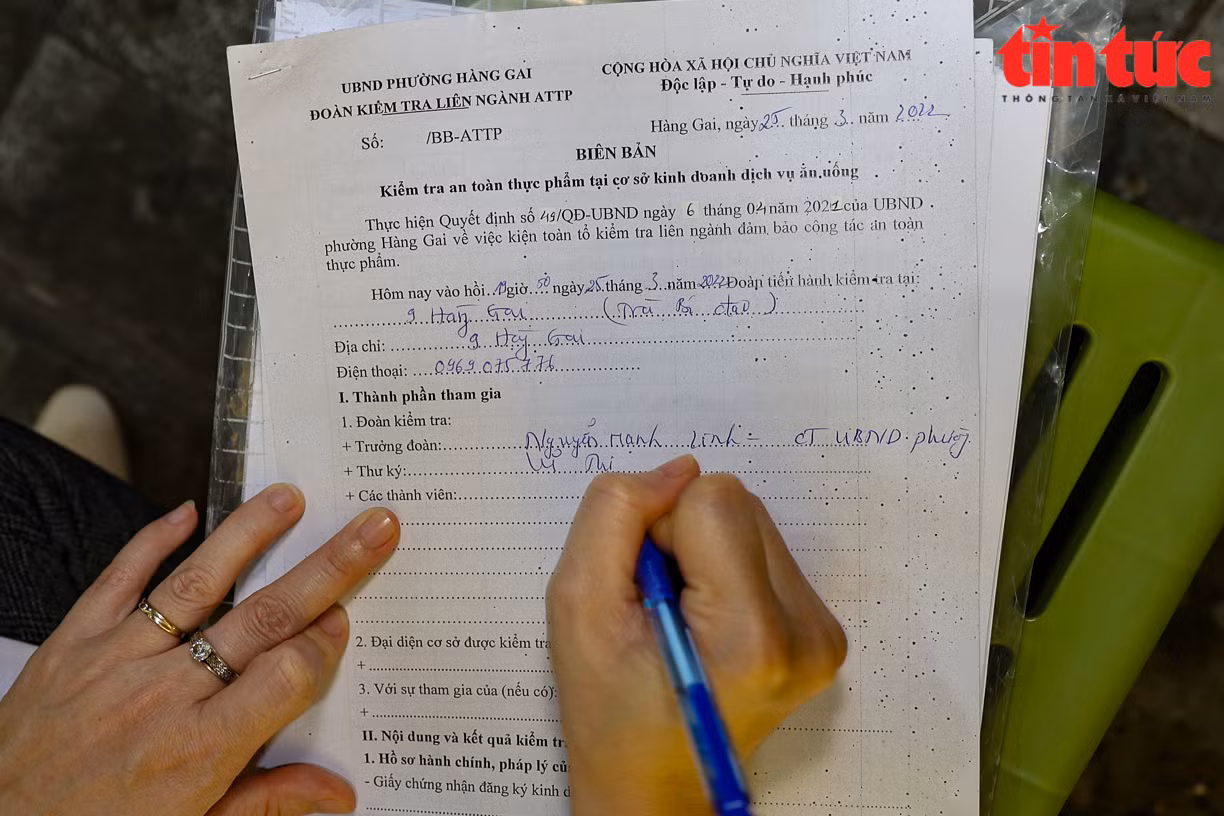 tin tức
THÔNG TẤN XÃ VIỆT NAM
UBND PHƯỜNG HÀNG GAI
ĐOÀN KIỂM TRA LIÊN NGÀNH ATTP
Số: /BB-ATTP
CỘNG HÒA XÃ HỘI CHỦ NGHĨA VIỆT NAM
Độc lập - Tự do - Hạnh phúc
Hàng Gai, ngày 25 tháng 3 năm 2022
BIÊN BẢN
Kiểm tra an toàn thực phẩm tại cơ sở kinh doanh dịch vụ ăn uống
Thực hiện Quyết định số 49/QĐ-UBND ngày 6 tháng 04 năm 2021 của UBND
phường Hàng Gai về việc kiện toàn tổ kiểm tra liên ngành đảm bảo công tác an toàn
thực phẩm.
Hôm nay vào hồi giờ 50 ngày 25 tháng 3 năm 2022 Đoàn tiến hành kiểm tra tại:
9 Hàng Gai (Trà Bí đao)
Địa chỉ: 9 Hàng Gai
Điện thoại: 0969.075.776
I. Thành phần tham gia
1. Đoàn kiểm tra:
+ Trưởng đoàn: Nguyễn Mạnh Linh - CT UBND phường
+ Thư ký: Vũ Thị
+ Các thành viên:
2. Đại diện cơ sở được kiểm tra
+
3. Với sự tham gia của (nếu có):
+
II. Nội dung và kết quả kiểm tr
1. Hồ sơ hành chính, pháp lý củ
- Giấy chứng nhận đăng ký kinh d